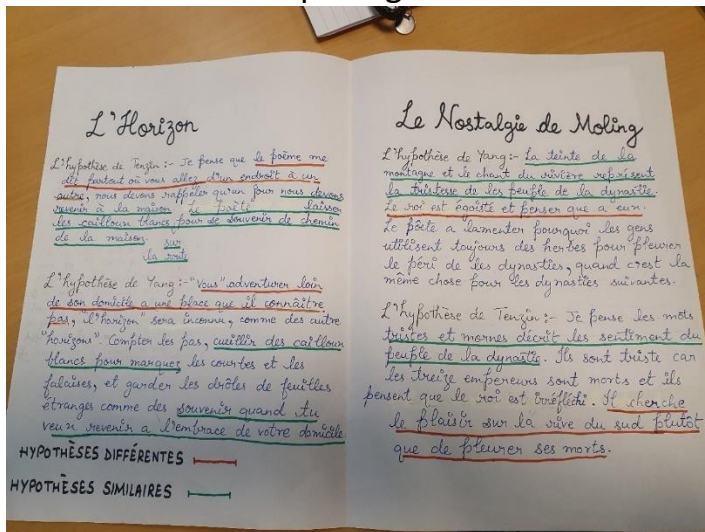 L'Horizon
L'hypothèse de Tenzin :- Je pense que le poème me
dit partout où vous allez d'un endroit à un
autre, nous devons rappeler qu'un jour nous devons
revenir à la maison. Le poète laisser
les cailloun blancs pour se souvenir de chemin
de la maison. sur
la route
L'hypothèse de Yang :- "Vous" adventurer loin
de son domicile a une place que il connaître
pas, "l'horizon" sera inconnu, comme des autre
"horizons". Compter les pas, cueillir des cailloun
blancs pour marquer les courbes et les
falaises, et garder les drôles de feuilles
étranges comme des souvenir quand tu
veun revenir a l'embrace de votre domicile
HYPOTHÈSES DIFFÉRENTES
HYPOTHÈSES SIMILAIRES
Le Nostalgie de Moling
L'hypothèse de Yang :- La teinte de la
montagne et le chant du rivière représent
la tristesse de les peuple de la dynastie.
Le roi est égoïste et penser que a eun.
Le pôète a lamenter pourquoi les gens
utilisent toujours des herbes pour pleurer
le péri de les dynasties, quand c'est la
même chose pour les dynasties suivantes.
L'hypothèse de Tenzin :- Je pense les mots
tristes et mornes décrit les sentiment du
peuple de la dynastie. Ils sont triste car
les treize empereurs sont morts et ils
pensent que le roi est irréfléchi. Il cherche
le plaisir sur la rive du sud plutôt
que de pleurer ses morts.